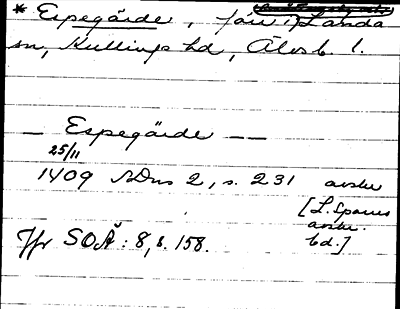 * Espegärde, förr i Landa
sn, Kullings hd, Älvsb. l.
— Espegärde — —
25/11
1409 SDns 2, s. 231 avskr
[L. Sparres
avskr.
bd.]
Jfr SOÄ: 8, s. 158.